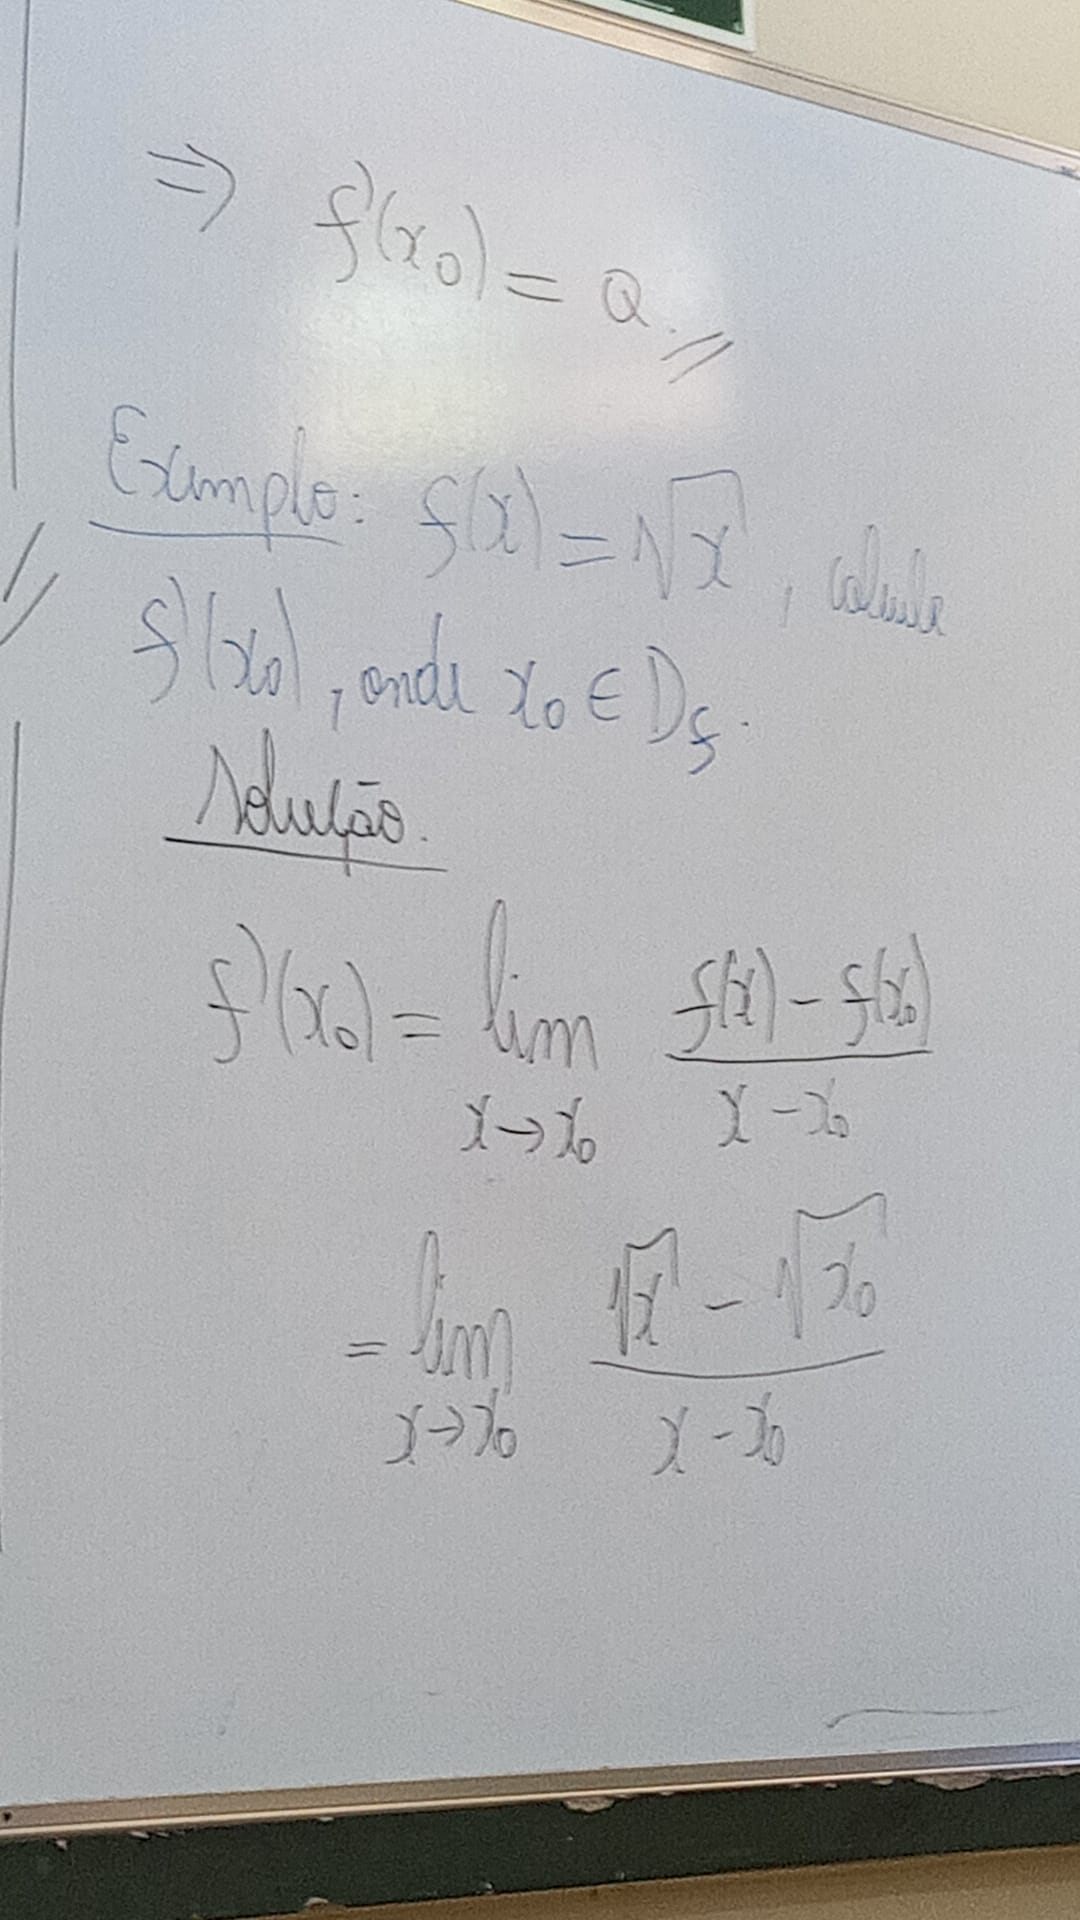 ⇒ f'(x₀) = a.
Exemplo: f(x) = √x, calcule
f'(x₀), onde x₀ ∈ D_f.
Solução.
f'(x₀) = lim f(x) - f(x₀)
x→x₀ x - x₀
= lim √x - √x₀
x→x₀ x - x₀